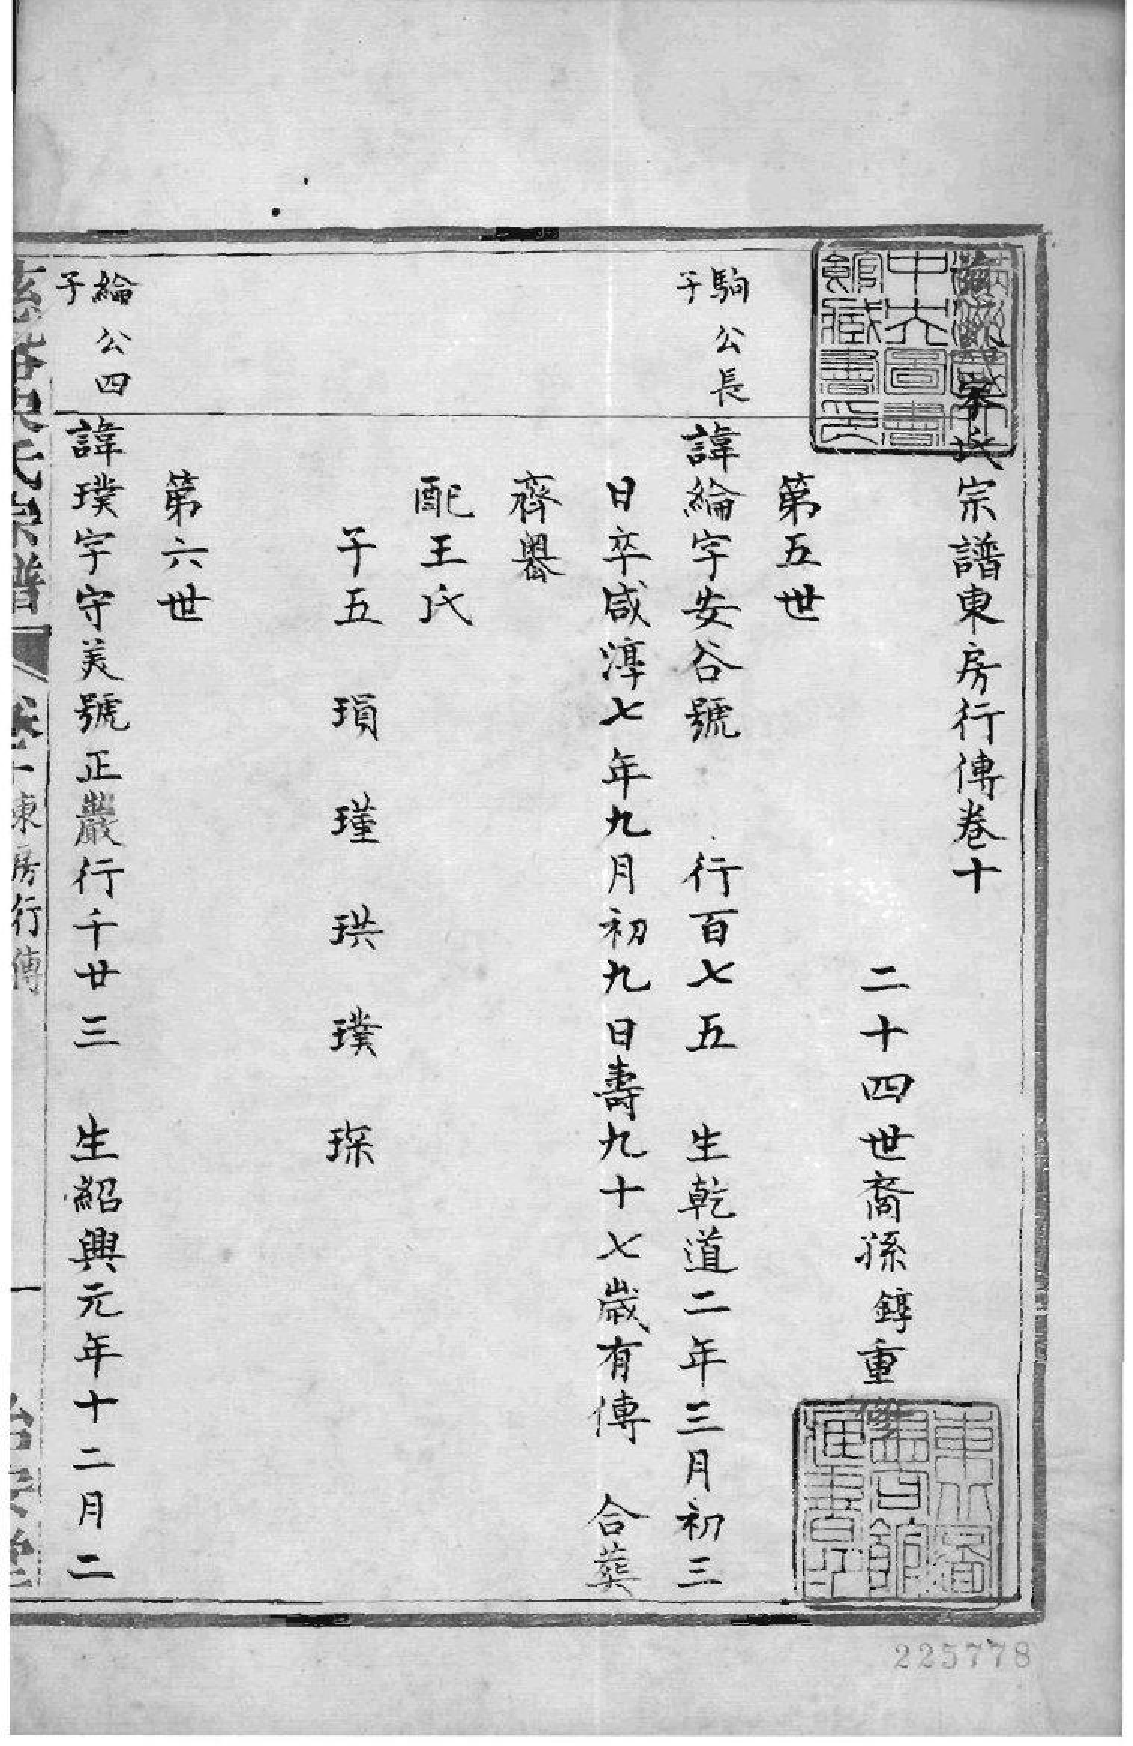 李氏宗譜東房行傳卷十
二十四世裔孫錞重修
第五世
駒公長
子
諱綸字安谷號 行百七五 生乾道二年三月初三
日卒咸淳七年九月初九日壽九十七歲有傳 合葬
齊嶴
配王氏
子五 頊 瑾 珙 璞 琛
第六世
綸公四
子
諱璞字守美號正嚴行千廿三 生紹興元年十二月二
氏宗譜
卷十
東房行傳
一
中央圖書
館藏書
225778